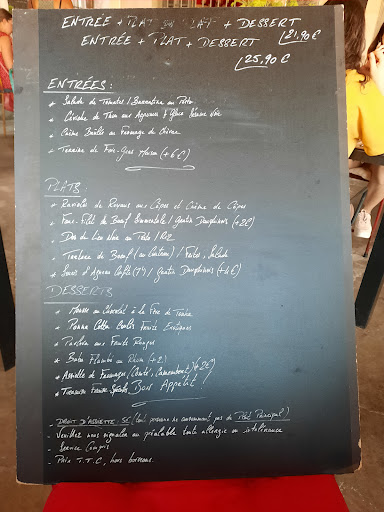 ENTRÉE + PLAT OU PLAT + DESSERT 21,90€
ENTRÉE + PLAT + DESSERT
25,90€
ENTRÉES :
* Salade de Tomates / au Pesto
* Ceviche de Thon aux Agrumes &
* Crème Brûlée au Fromage de Chèvre
* Terrine de Foie-Gras Maison (+6€)
PLATS :
* Raviole de Royans aux Cèpes et Crème de Cèpes
* Faux-Filet de Boeuf / Gratin Dauphinois (+2€)
* Dos de Lieu Noir au Pesto / Riz
* Tartare de Boeuf (au Couteau) / Frites, Salade
* Souris d'Agneau Confite / Gratin Dauphinois (+4€)
DESSERTS
* Mousse au Chocolat à la Fève de Tonka
* Panna Cotta Coulis Fruits Exotiques
* Pavlova aux Fruits Rouges
* Baba Flambé au Rhum (+2)
* Assiette de Fromages (Comté, Camembert) (+2€)
* Bon Appétit
- DROIT D'ASSIETTE : 5€ (toute personne ne consommant pas de Plat Principal)
- Veuillez nous signaler au préalable toute allergie ou intolérance
- Service Compris
- Prix T.T.C, hors boissons.